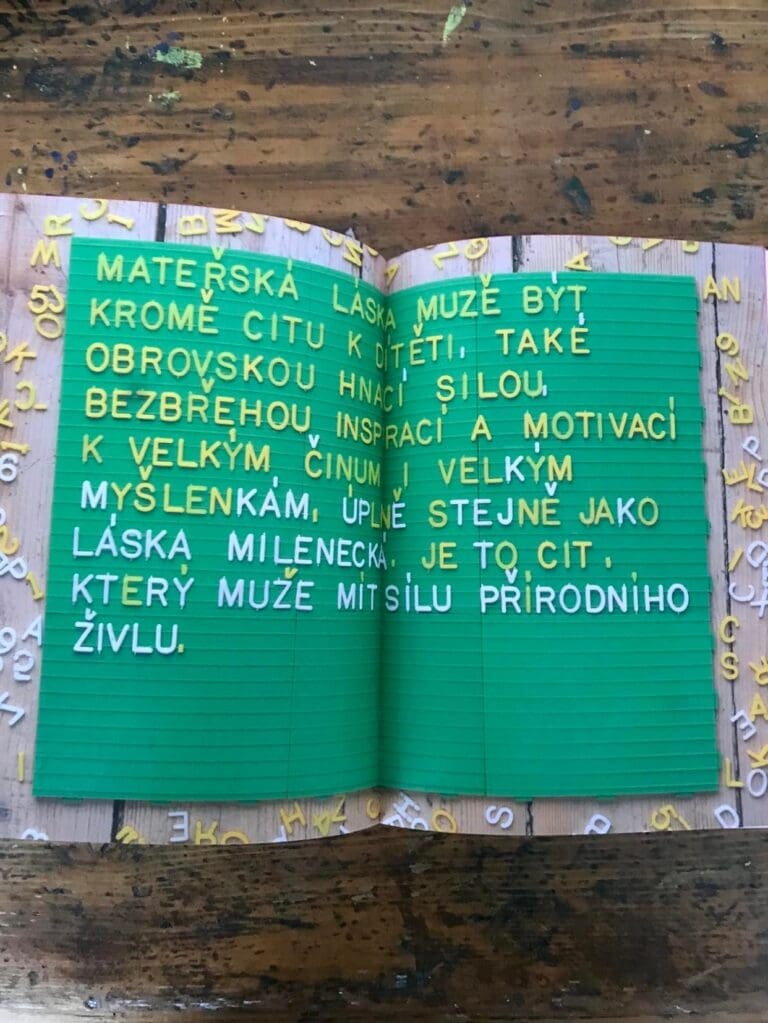 MATEŘSKÁ LÁSKA MUZĚ BÝT
KROMĚ CITU K DÍTĚTI, TAKÉ
OBROVSKOU HNACÍ SILOU,
BEZBŘEHOU INSPIRACÍ A MOTIVACÍ
K VELKÝM ČINUM I VELKÝM
MYŠLENKÁM, ÚPLNĚ STEJNĚ JAKO
LÁSKA MILENECKÁ. JE TO CIT,
KTERÝ MUŽE MÍT SÍLU PŘÍRODNÍHO
ŽIVLU.